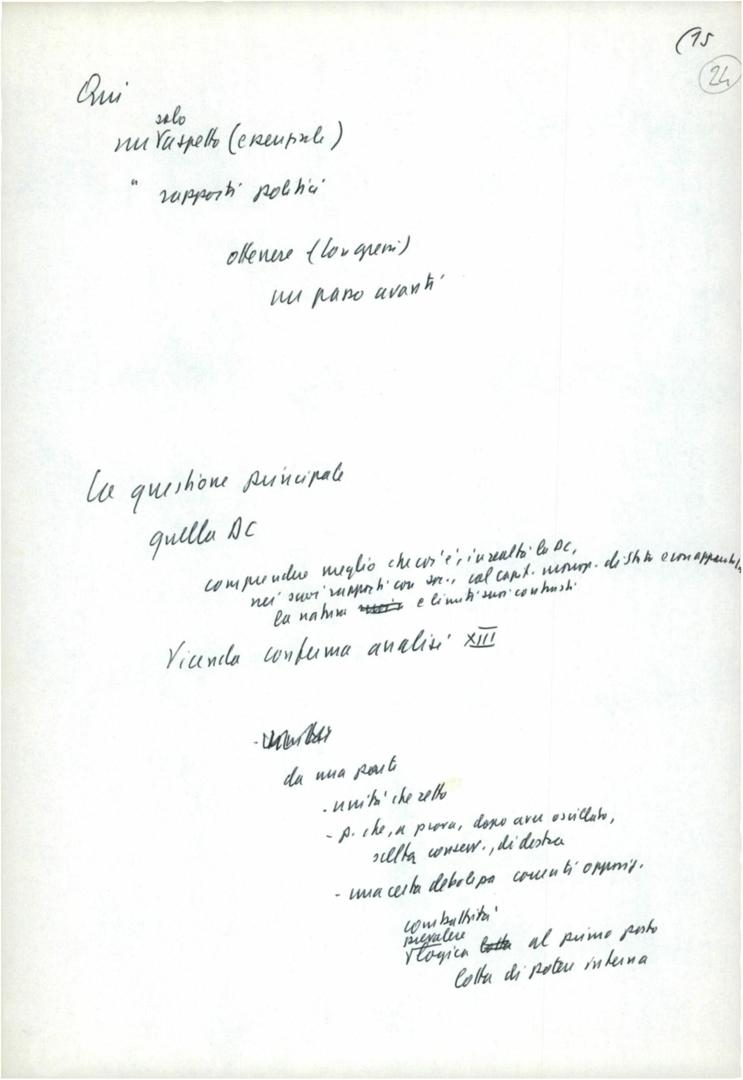 (15
24
Qui
solo
un aspetto (essenziale)
" rapporti politici
ottenere (Longresi)
un passo avanti
La questione principale
quella DC
comprendere meglio che cos'è, in realtà la DC,
nei suoi rapporti con soc., col capit. monop. di Stato e con
la natura e limiti suoi contrasti
Vicenda conferma analisi XIII
da una parte
- unità che retto
- p. che, a prova, dopo aver oscillato,
scelta conserv., di destra
- una certa debolezza correnti opposiz.
combattività
prevalere
logica lotta al primo posto
lotta di potere interna